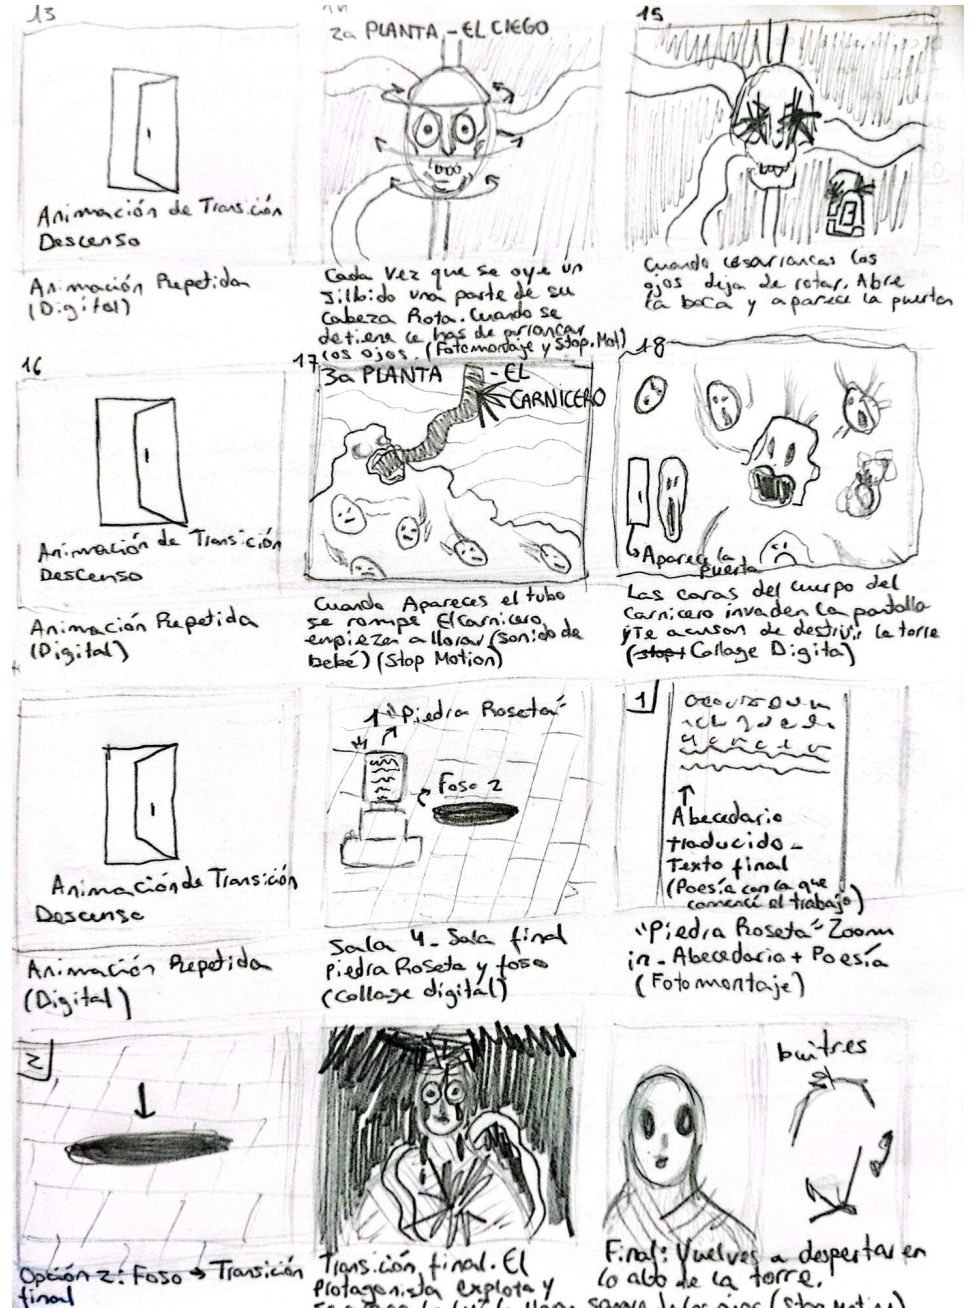 13
Animación de Transición
Descenso
Animación Repetida
(Digital)
2a PLANTA - EL CIEGO
Cada vez que se oye un
silbido una parte de su
cabeza Rota. Cuando se
detiene le has de arrancar
los ojos. (Fotomontaje y Stop. Mot)
15
Cuando les arrancas los
ojos deja de rotar. Abre
la boca y aparece la puerta
16
Animación de Transición
Descenso
Animación Repetida
(Digital)
17
3a PLANTA - EL
CARNICERO
Cuando Apareces el tubo
se rompe El carnicero
empieza a llorar (sonido de
bebé) (Stop Motion)
18
Aparece la
puerta
Las caras del cuerpo del
Carnicero invaden la pantalla
y Te acusan de destruir la torre
(stop+ Collage Digital)
Animación de Transición
Descenso
Animación Repetida
(Digital)
1 "Piedra Roseta"
Foso 2
Sala 4 - Sala final
Piedra Roseta y foso
(Collage digital)
1
Abecedario
traducido -
Texto final
(Poesía con la que
comencé el trabajo)
"Piedra Roseta" Zoom
in - Abecedario + Poesía
(Fotomontaje)
2
Opción 2: Foso → Transición
final
Transición final. El
Protagonista explota y
buitres
Final: Vuelves a despertar en
lo alto de la torre.
sangre de los ojos (Stop Motion)